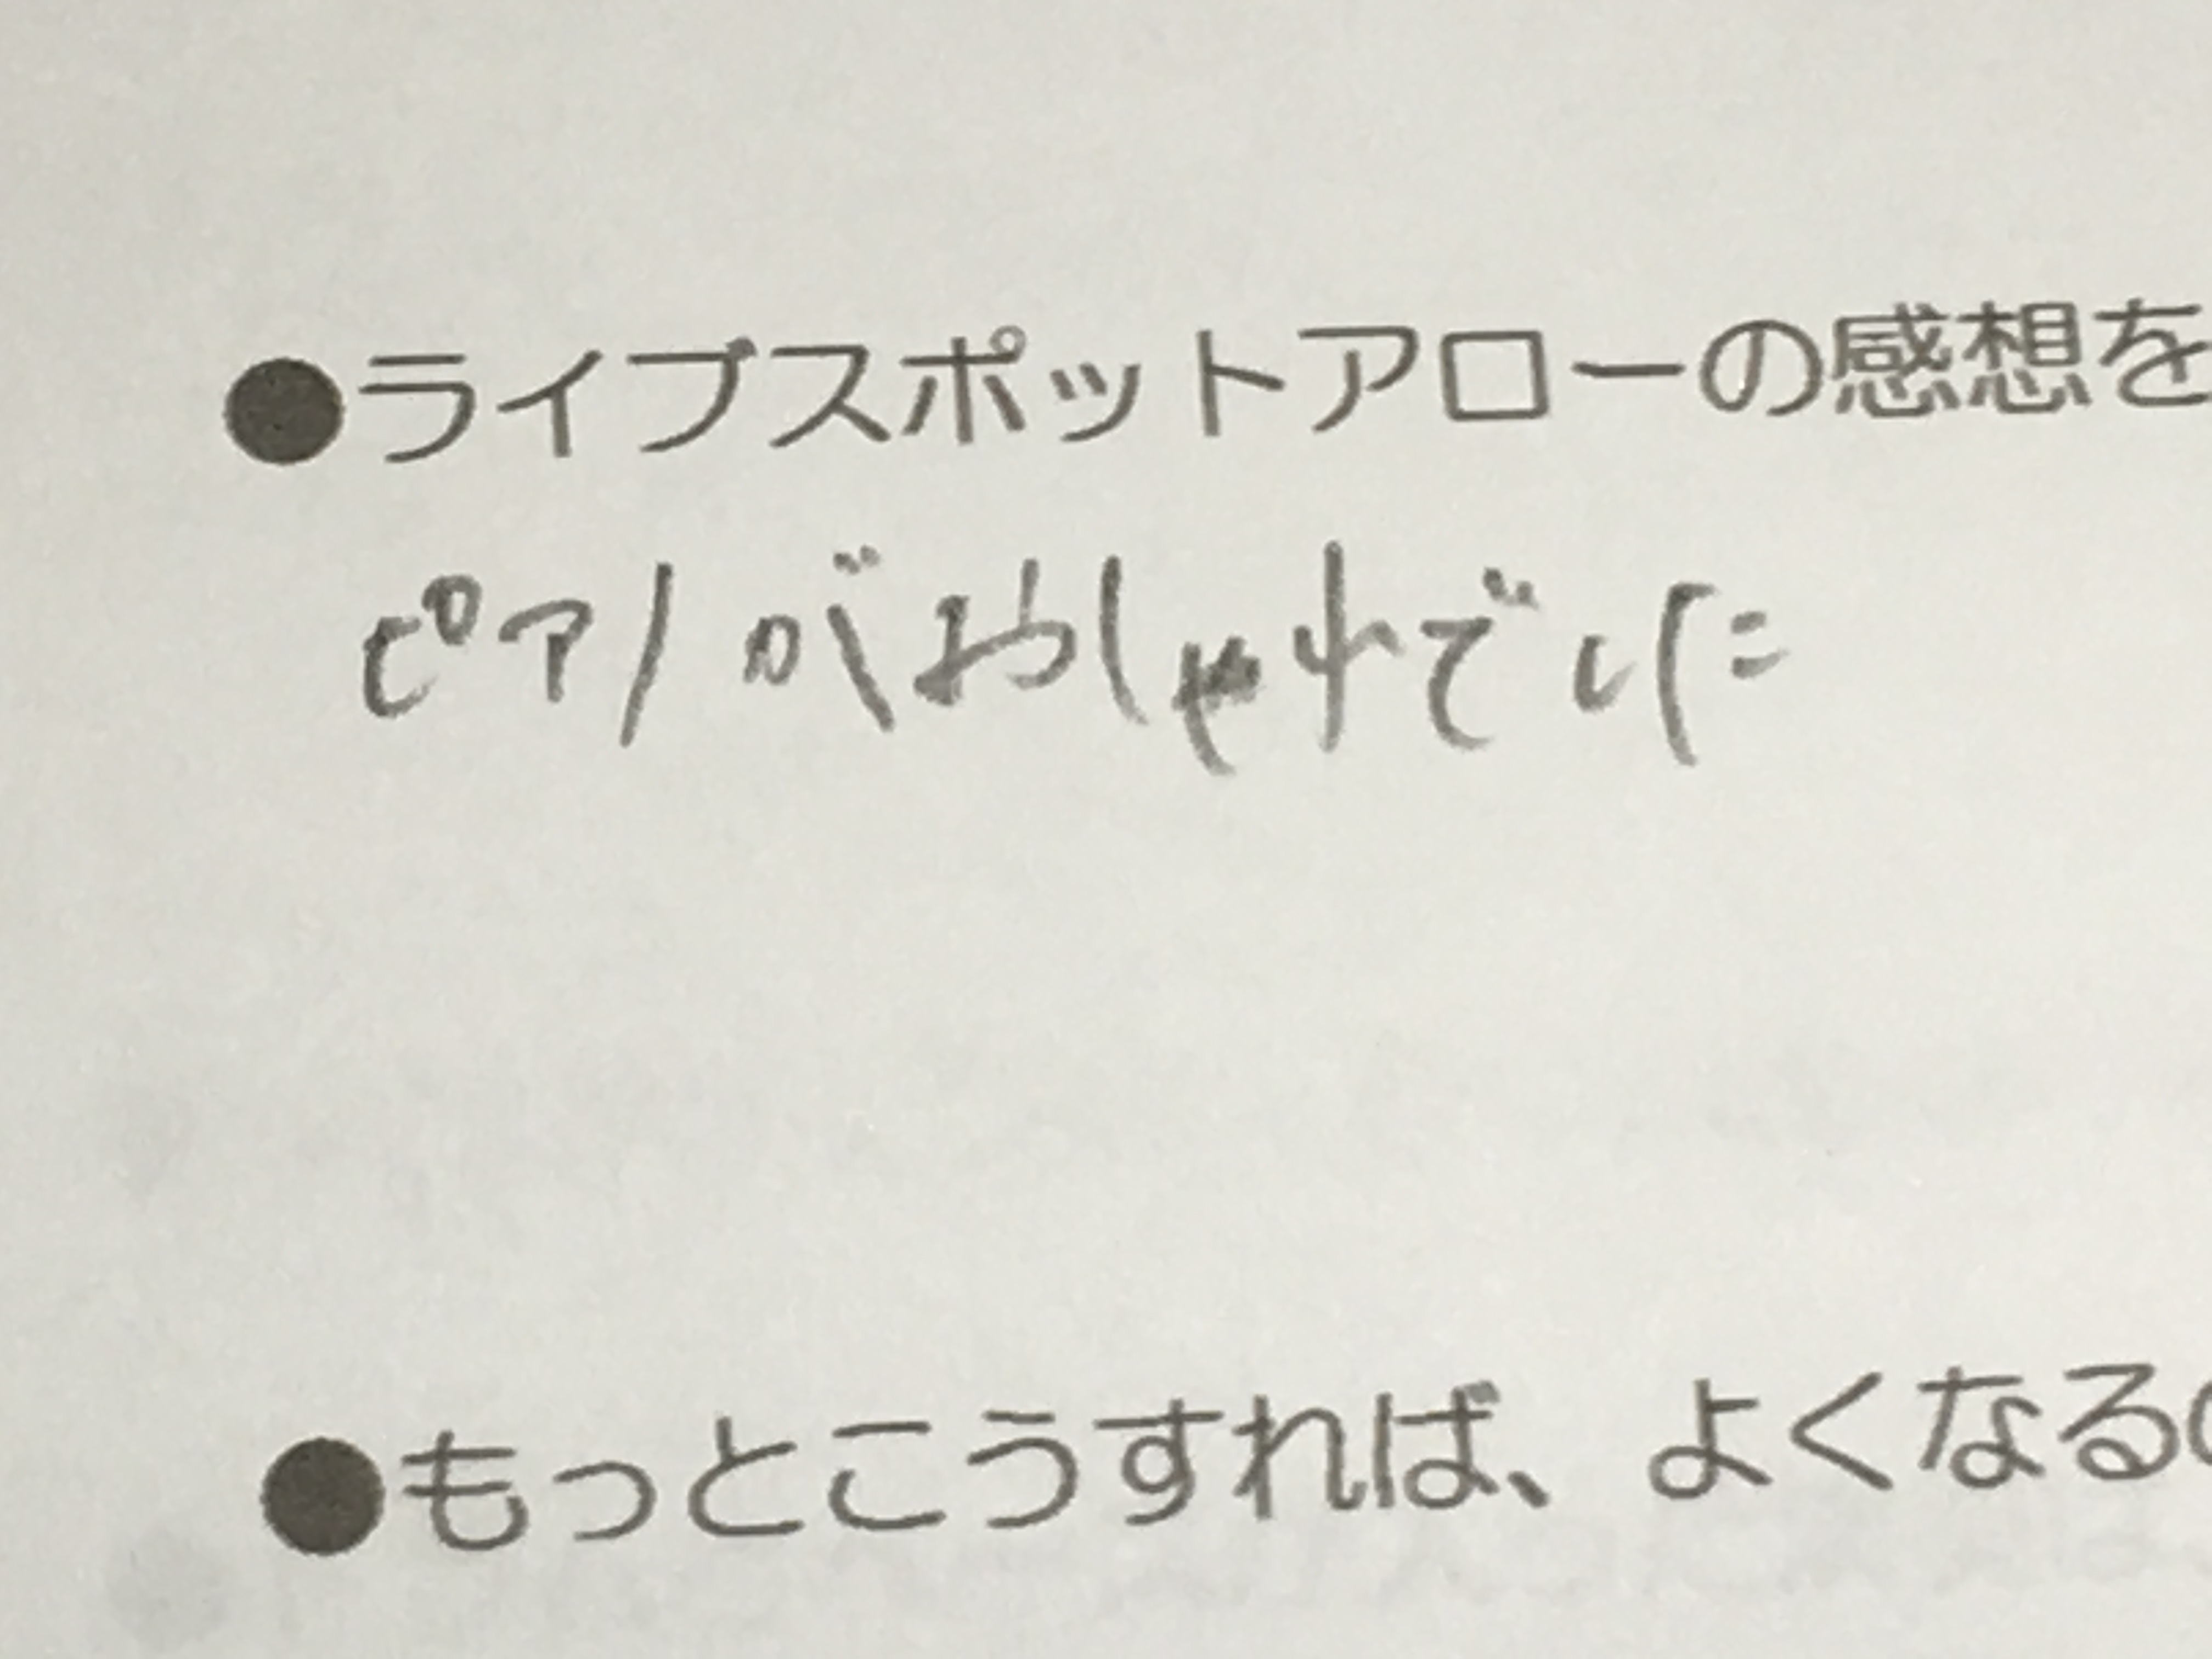 ●ライブスポットアローの感想を
ピアノがおしゃれでした
●もっとこうすれば、よくなる